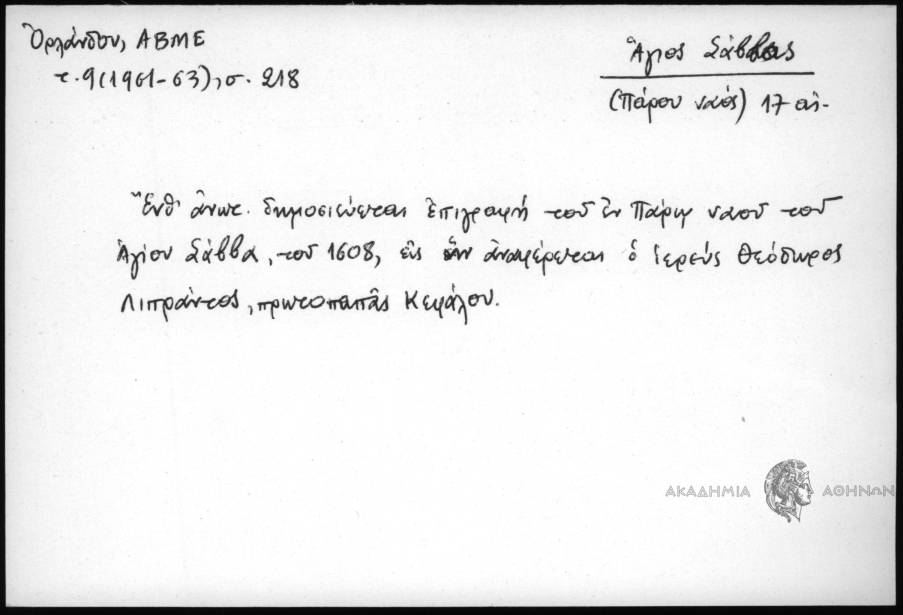 Ὀρλάνδου, ΑΒΜΕ
τ. 9 (1961-63), σ. 218
Ἅγιος Σάββας
(Πάρου ναός) 17 αἰ.
Ἔνθ' ἄνωτ. δημοσιεύεται ἐπιγραφή τοῦ ἐν Πάρῳ ναοῦ τοῦ
Ἁγίου Σάββα, τοῦ 1608, εἰς ἣν ἀναφέρεται ὁ ἱερεύς Θεόδωρος
Λιπράντος, πρωτοπαπᾶς Κεφάλου.
ΑΚΑΔΗΜΙΑ ΑΘΗΝΩΝ